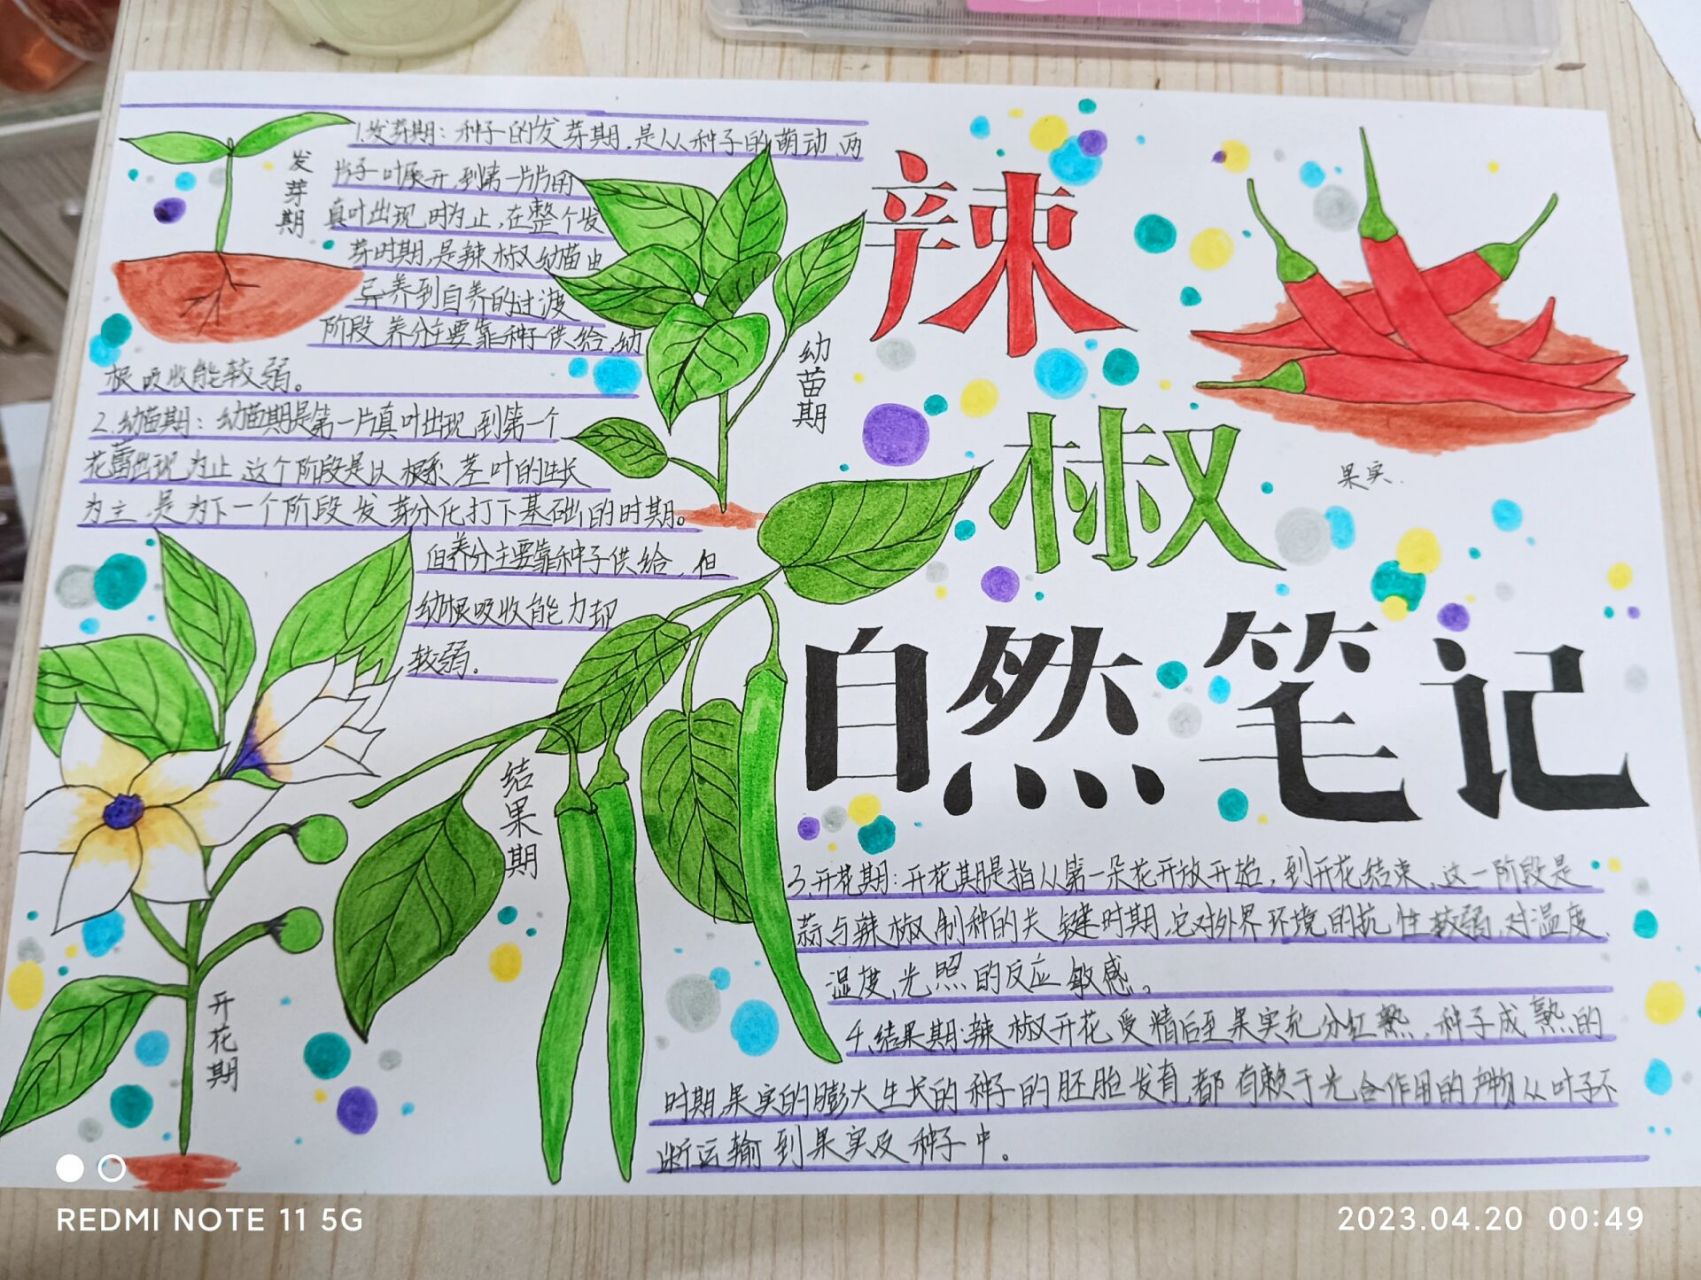 辣
椒
自然笔记
1.发芽期：种子的发芽期，是从种子的萌动、两
片子叶展开，到第一片片的
真叶出现，时为止，在整个发
芽时期，是辣椒幼苗由
异养到自养的过渡
阶段，养分主要靠种子供给，幼
根吸收能较弱。
发芽期
2.幼苗期：幼苗期是第一片真叶出现，到第一个
花蕾出现为止，这个阶段是以根系、茎叶的生长
为主，是为下一个阶段发芽分化打下基础的时期。
但养分主要靠种子供给，但
幼根吸收能力却
较弱。
幼苗期
果实.
结果期
开花期
3.开花期：开花期是指从第一朵花开放开始，到开花结束，这一阶段是
蒜与辣椒制种的关键时期，它对外界环境的抗性较弱，对温度、
湿度，光照的反应敏感。
4.结果期：辣椒开花，受精后至果实充分红熟，种子成熟的
时期，果实的膨大生长的种子的胚胎发育，都有赖于光合作用的产物从叶子不
断运输到果实及种子中。
REDMI NOTE 11 5G
2023.04.20 00:49